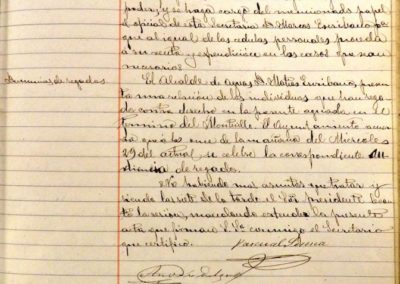 poder, y se haga cargo del mencionado papel
el oficial de esta Secretaria D. Marcos Escribano pa
que al igual de las cedulas personales proceda
a su venta y expendicion en los casos que sean
necesarios.
Denuncias de regadas
El Alcalde de aguas D. Matias Escribano, presen
ta una relacion de los individuos que han rega
do contra derecho en la presente aguada en el
termino del Montecillo. El Ayuntamiento acuer
da que a las once de la mañana del Miercoles
29 del actual, se celebre la correspondiente Au
diencia de regadas.
No habiendo mas asuntos que tratar y
siendo las siete de la tarde el Sor. presidente levan
ta la sesion, mandando extender la presente
acta que firma S.S. conmigo el Secretario
que certifico.
Pascual